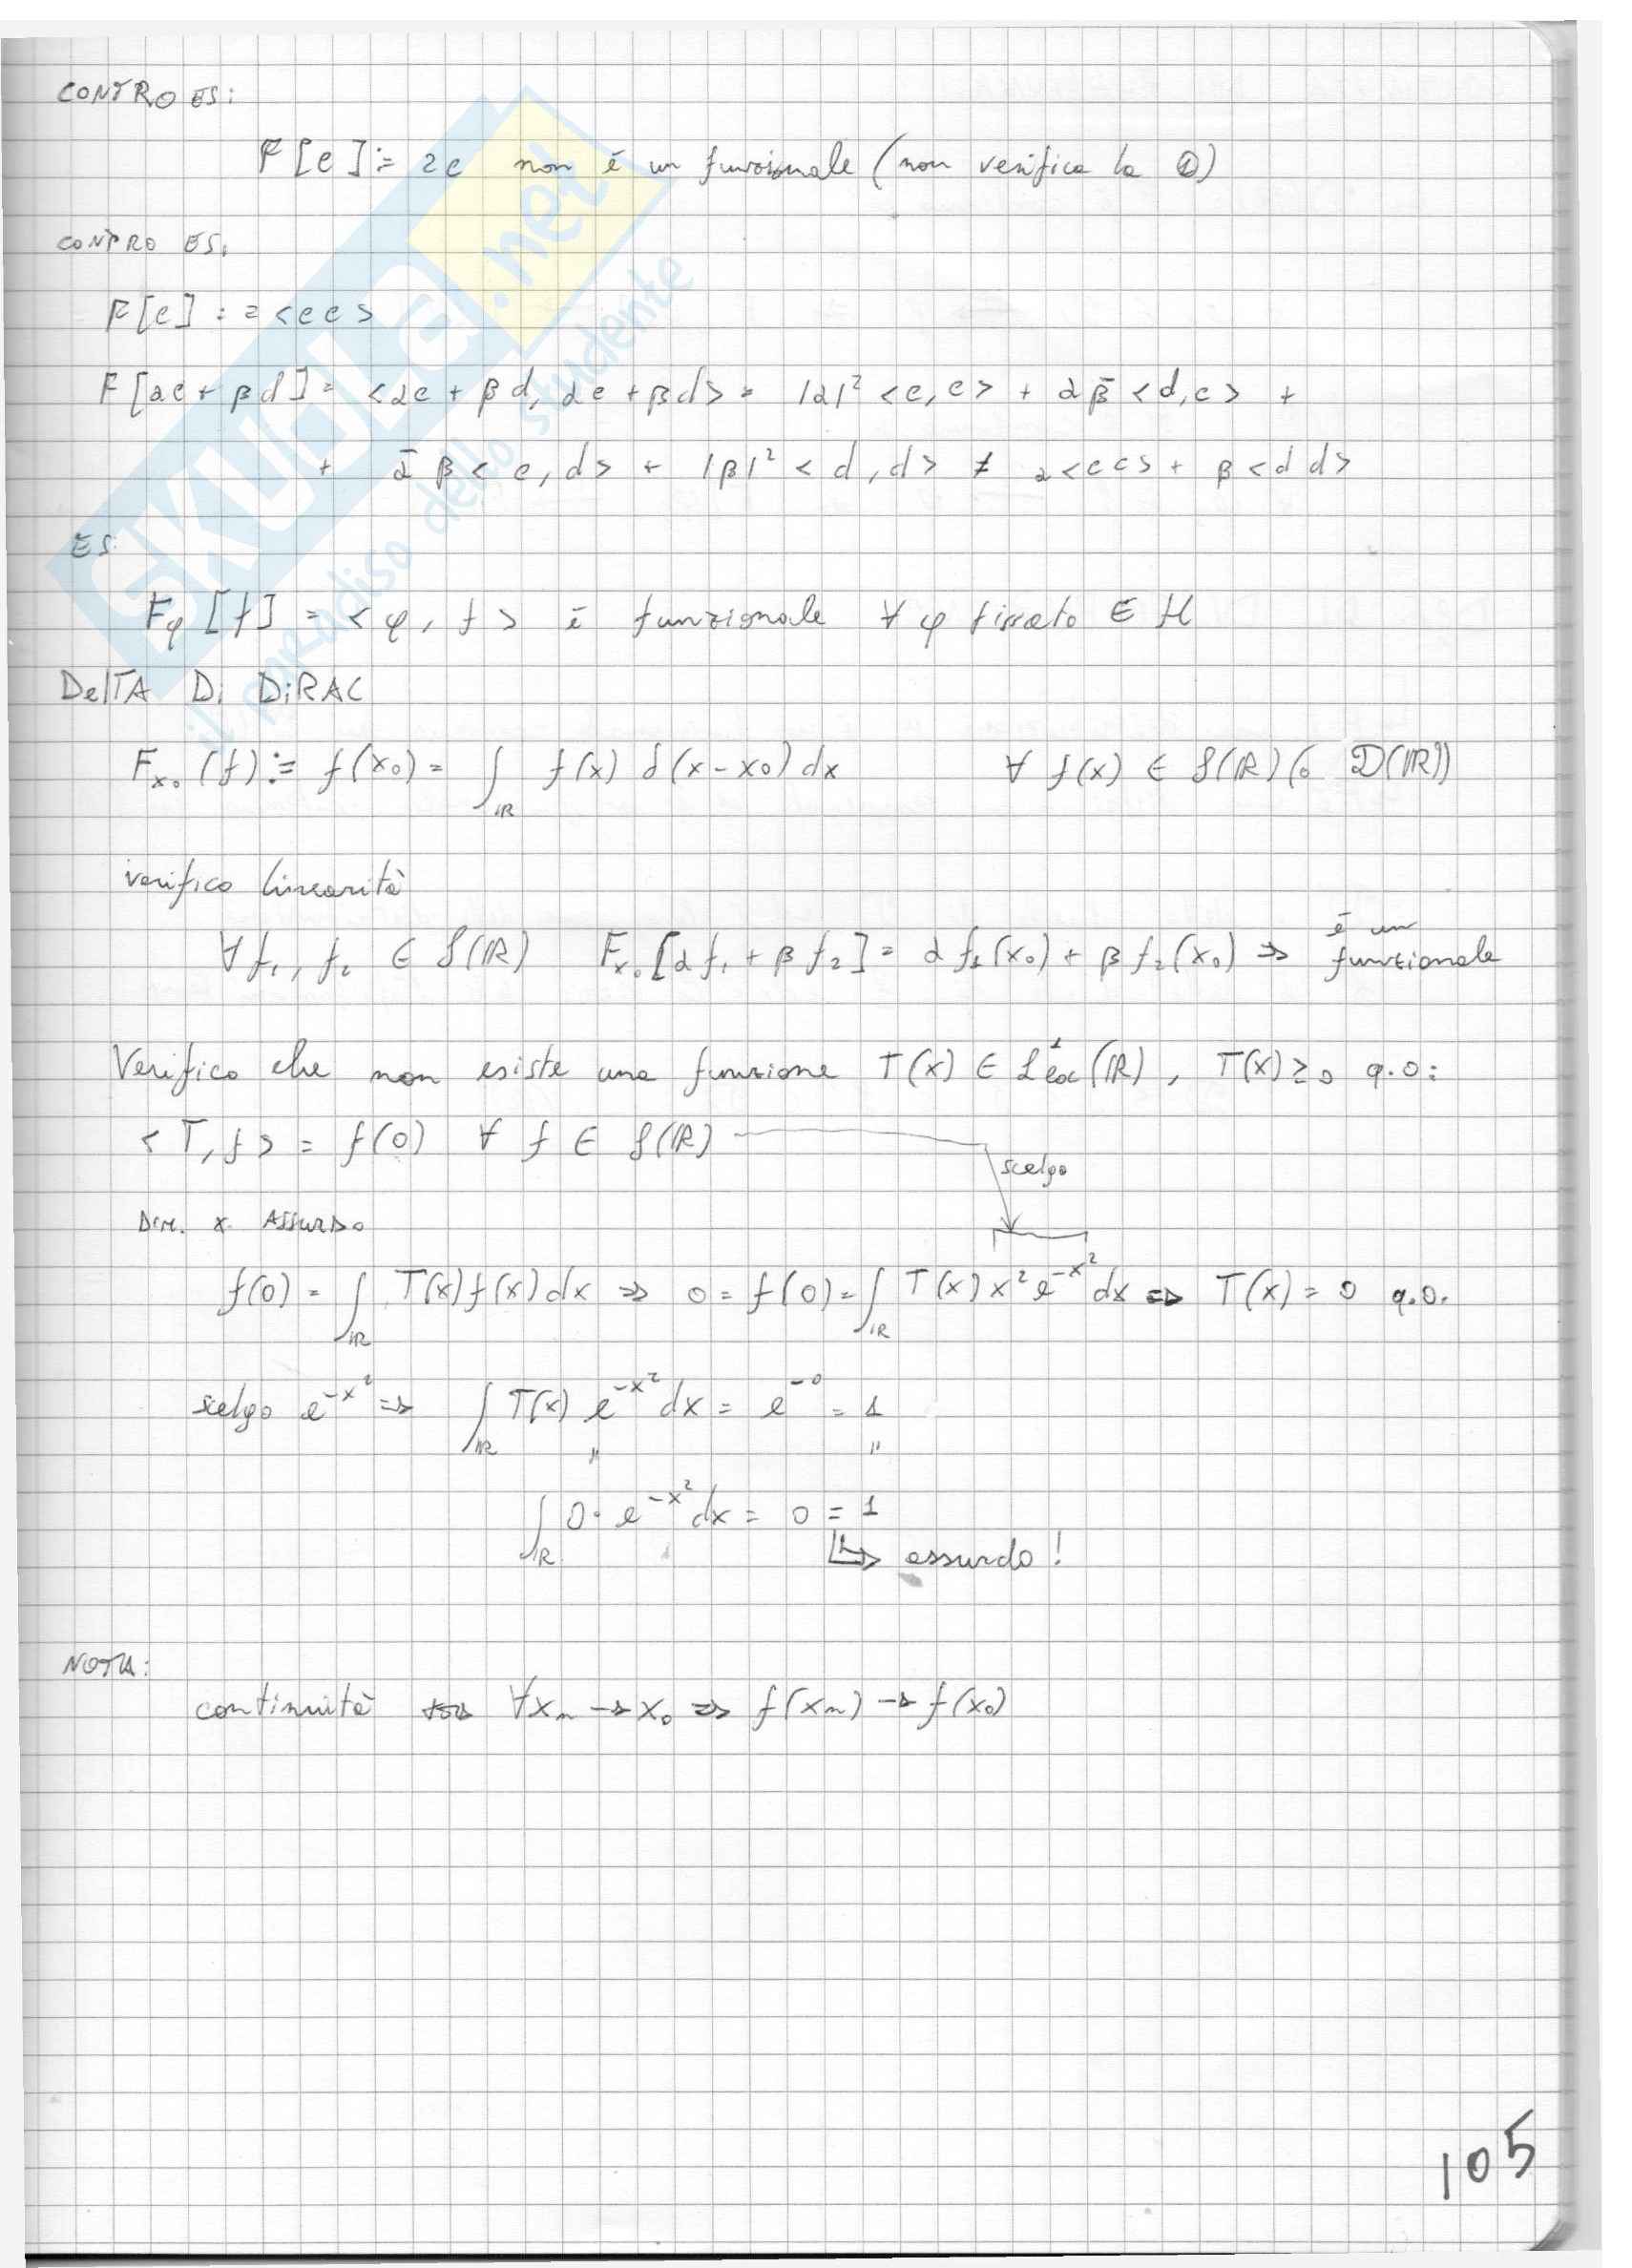 CONTRO ES:
F[e] := 2e non è un funzionale (non verifica la ①)
CONTRO ES.
F[e] := <e e>
F[αe + βd] = <αe + βd, αe + βd> = |α|² <e, e> + αβ̄ <d, e> +
+ ᾱβ <e, d> + |β|² <d, d> ≠ α<e e> + β<d d>
ES.
Fφ[f] = <φ, f> è funzionale ∀ φ fissato ∈ H
DELTA DI DIRAC
Fx₀(f) := f(x₀) = ∫ℝ f(x) δ(x-x₀) dx ∀ f(x) ∈ S(ℝ) (o D(ℝ))
verifico linearità
∀ f₁, f₂ ∈ S(ℝ) Fx₀[αf₁ + βf₂] = αf₁(x₀) + βf₂(x₀) ⇒ è un funzionale
Verifico che non esiste una funzione T(x) ∈ L¹loc(ℝ), T(x) ≥ 0 q.o:
<T, f> = f(0) ∀ f ∈ S(ℝ)
scelgo
DIM. X ASSURDO
f(0) = ∫ℝ T(x) f(x) dx ⇒ 0 = f(0) = ∫ℝ T(x) x² e^-x² dx ⇔ T(x) = 0 q.o.
scelgo e^-x² ⇒ ∫ℝ T(x) e^-x² dx = e^-0 = 1
" "
∫ℝ 0 · e^-x² dx = 0 = 1
↳ assurdo!
NOTA:
continuità ⇔ ∀xₙ → x₀ ⇒ f(xₙ) → f(x₀)
105
SKUOLA.net
il paradiso dello studente